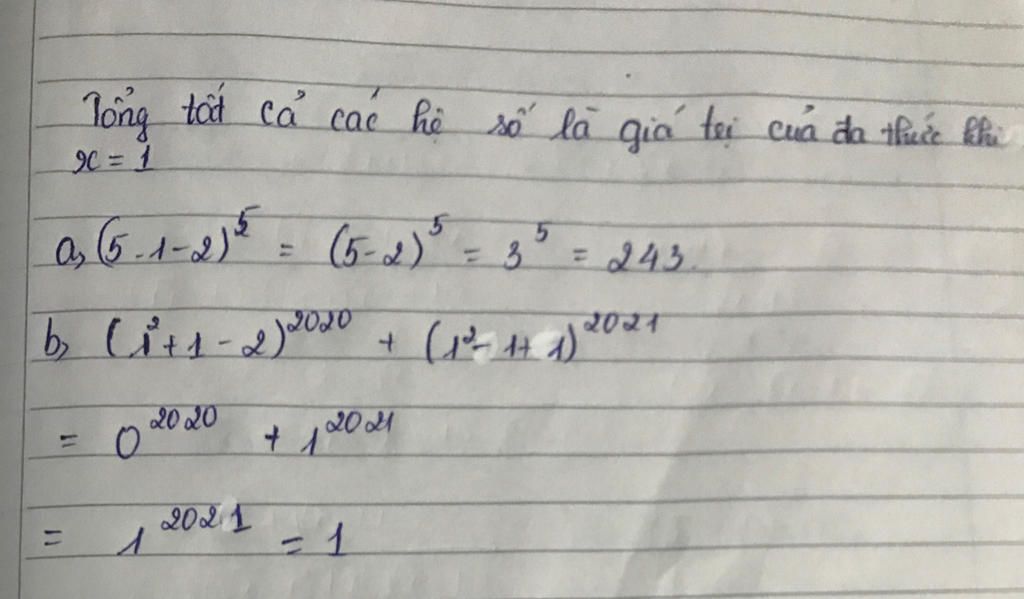 Tổng tất cả các hệ số là giá trị của đa thức khi
x = 1
a, (5.1-2)^5 = (5-2)^5 = 3^5 = 243.
b, (1^2+1-2)^2020 + (1^2-1+1)^2021
= 0^2020 + 1^2021
= 1^2021 = 1